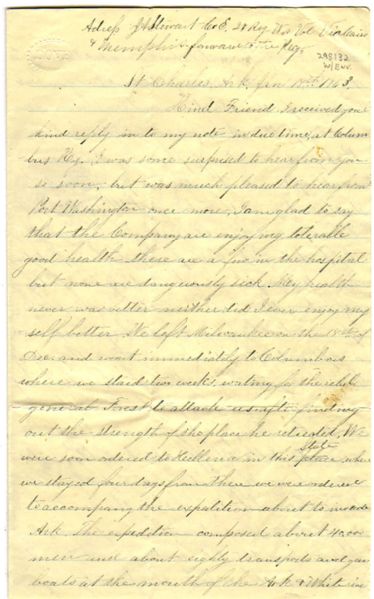 Adress J A Stewart Co E, 28 Reg Wis Vol Via Cairo
& Memphis forward to the Reg.
298132
W/Env.
St Charles, Ark, Jan 18th 1863
Kind Friend I received your
kind reply in to my note in due time, at Colum
bus Ky. I was some surprised to hear from you
so soon, but was much pleased to hear from
Port Washington once more, I am glad to say
that the Company are enjoying tolerable
good health there are a few in the hospital
but none are dangerously sick. My health
never was better neither did I ever enjoy my
self better. We left Milwaukee on the of
Dec and went immediately to Columbus
where we staid two weeks, waiting for the rebel
general Forest to attack us after finding
out the strength of the place he retreated, We
were soon ordered to in this State place where
we stayed four days from there we were ordered
to accompany the expedition about to invade
Ark. The expedition composed about 40,000
men and about eighty transports and gun
boats at the mouth of the Ark & White